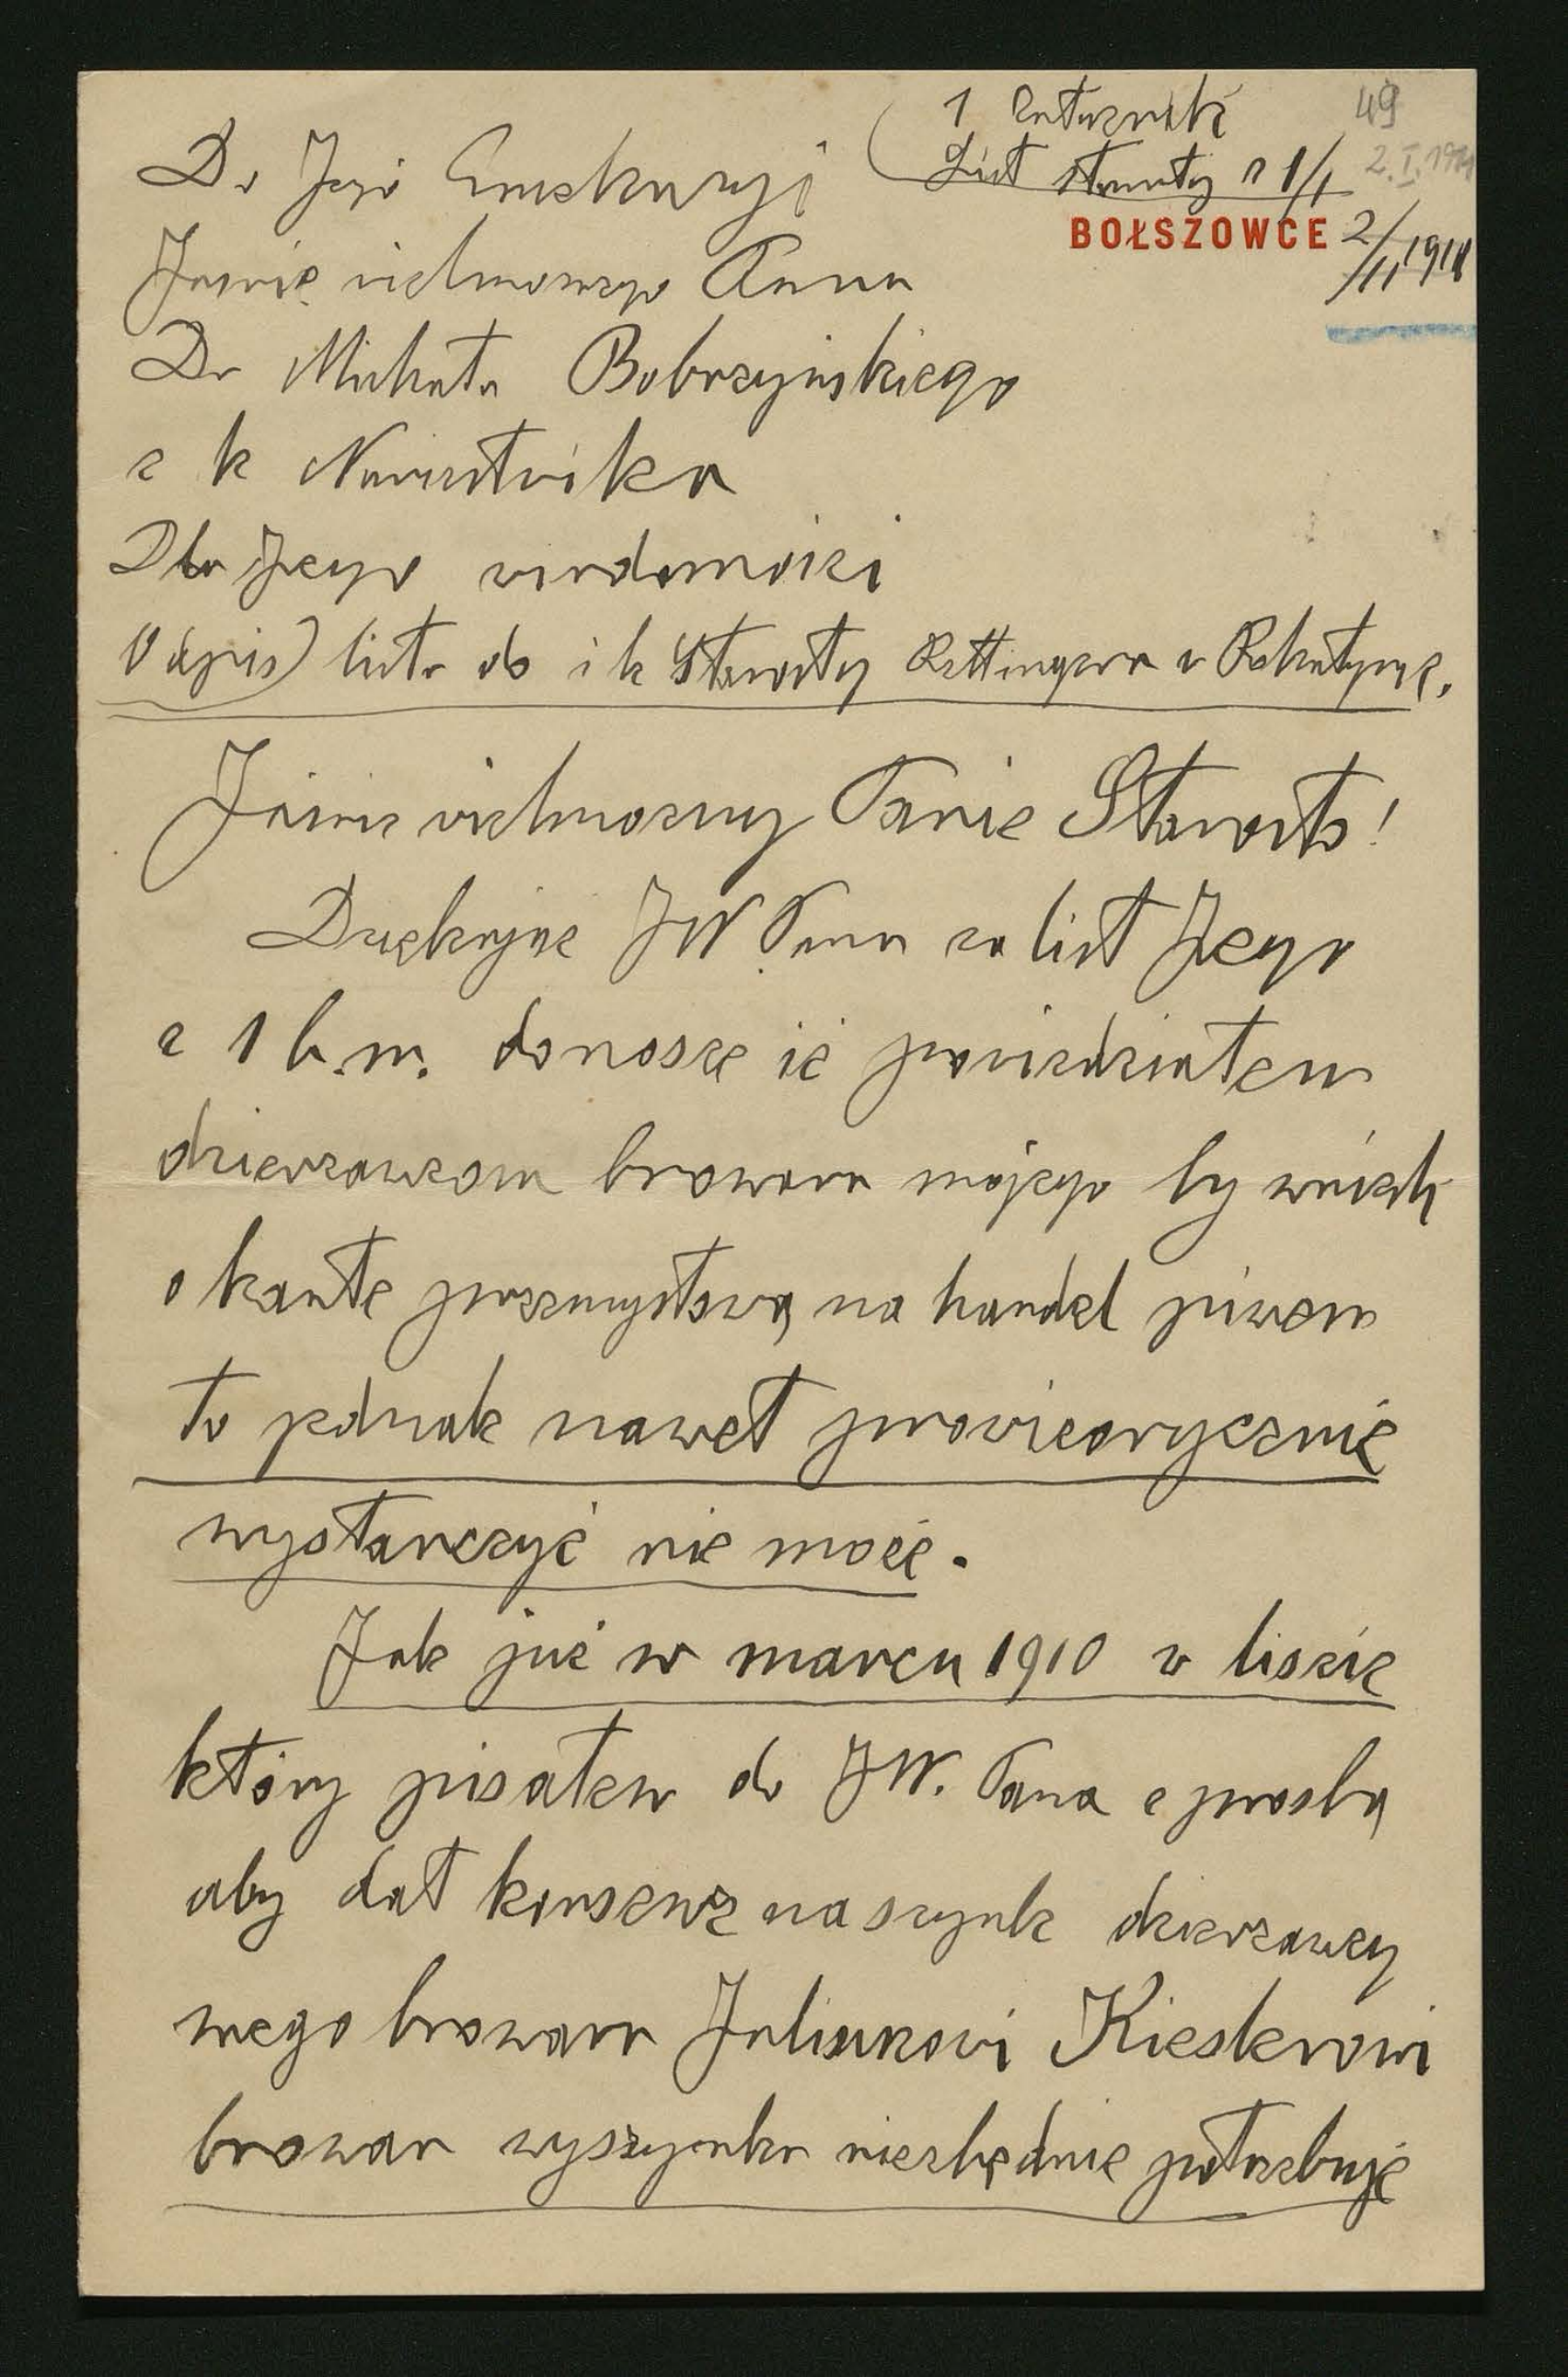 49
1 Załącznik
List starosty z 1/I
2.I.1911
BOŁSZOWCE 2/II 1911
Do Jego Ekscelencyi
Jaśnie wielmożnego Pana
Dr Michała Bobrzyńskiego
c k Namiestnika
Dla Jego wiadomości
Odpis listu do c k Starosty Rettingera w Rohatynie.
Jaśnie wielmożny Panie Starosto!
Dziękując JW Panu za list Jego
z 1 b.m. donoszę iż powiedziałem
dzierzawcom browaru mojego by wnieśli
o kartę przemysłową na handel piwem
to jednak nawet prowizorycznie
wystarczyć nie może.
Jak już w marcu 1910 w liscie
który pisałem do JW. Pana z prosbą
aby dał konsens na szynk dzierzawcy
mego browaru Juliuszowi Kieslerowi
browar wyszynku niezbędnie potrzebuje